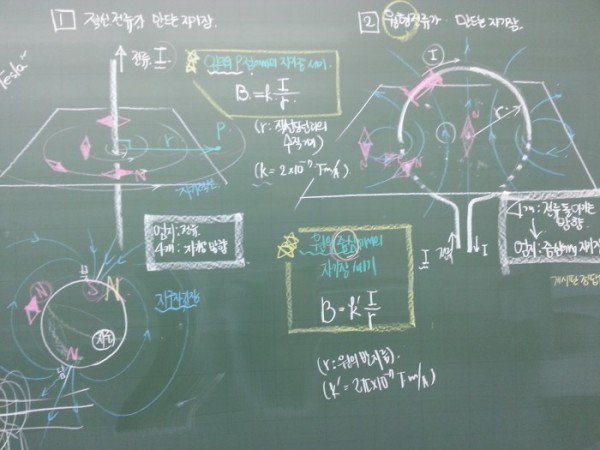 Tesla
1 직선전류가 만드는 자기장
전류 I
임의의 P점에서의 자기장 세기
B = k I/r
(r : 직선도선과의
수직거리)
(k = 2×10⁻⁷ T·m/A)
r
P
엄지 : 전류
4개 : 자기장 방향
지구자기장
북
S
N
N
지구
N
남
2 원형전류가 만드는 자기장
I
r
N
I 전류
I
4개 : 전류 돌아가는
방향
↓
엄지 : 중심에서
원의 중심에서의
자기장 세기
B = k' I/r
(r : 원의 반지름)
(k' = 2π×10⁻⁷ T·m/A)